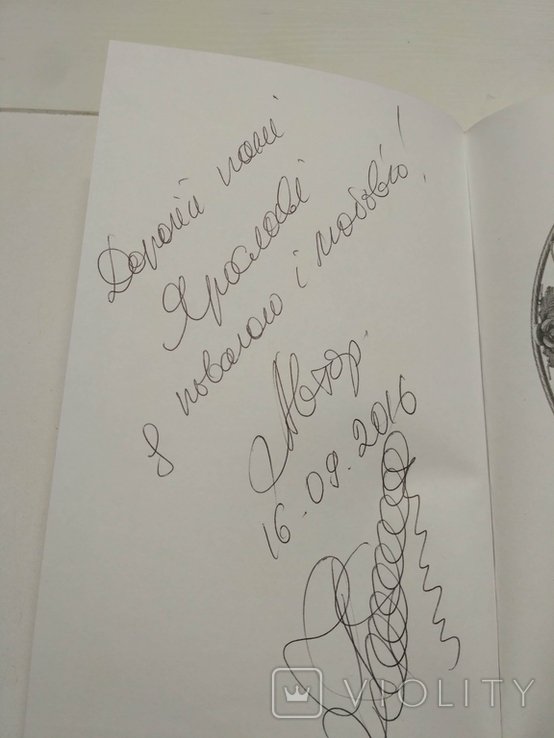 Дорогій пані
Ярославі
з повагою і любов'ю!
Автор.
16.09.2016
VIOLITY